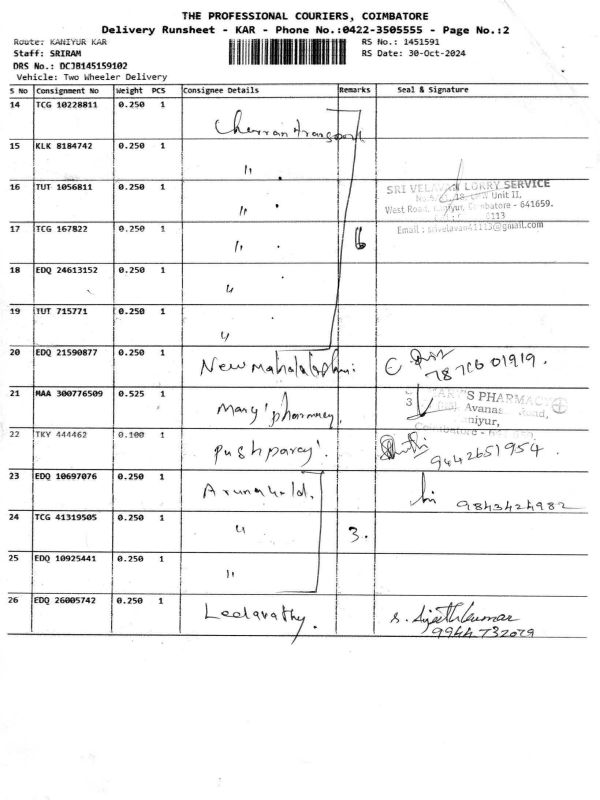 THE PROFESSIONAL COURIERS, COIMBATORE
Delivery Runsheet - KAR - Phone No.:0422-3505555 - Page No.:2
Route: KANIYUR KAR RS No.: 1451591
Staff: SRIRAM RS Date: 30-Oct-2024
DRS No.: DCJB145159102
Vehicle: Two Wheeler Delivery
S No Consignment No Weight PCS Consignee Details Remarks Seal & Signature
14 TCG 10228811 0.250 1 Cherran transport
15 KLK 8184742 0.250 1 "
16 TUT 1056811 0.250 1 "
SRI VELAVAN LORRY SERVICE
Unit II,
West Road, Coimbatore - 641659.
0113
Email : srivelavan41113@gmail.com
17 TCG 167822 0.250 1 " 6
18 EDQ 24613152 0.250 1 "
19 TUT 715771 0.250 1 "
20 EDQ 21590877 0.250 1 New mahalakshmi 787CG01919.
21 MAA 300776509 0.525 1 Mary' pharmacy.
MARY'S PHARMACY
Avanashi Road,
Kaniyur,
Coimbatore
22 TKY 444462 0.100 1 pushparaj'. 9442651954
23 EDQ 10697076 0.250 1 9843424982
24 TCG 41319505 0.250 1 " 3.
25 EDQ 10925441 0.250 1 "
26 EDQ 26005742 0.250 1 Leelavathy. S. Ajeethkumar
9944732079